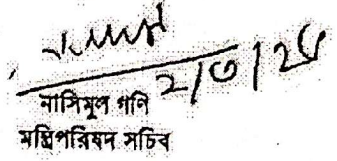 ২/৩/২৬
নাসিমুল গনি
মন্ত্রিপরিষদ সচিব